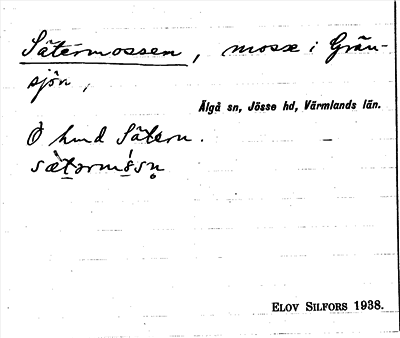 Sätermossen, mosse i Grän-
sjön,
Älgå sn, Jösse hd, Värmlands län.
Ö hmd Sätern.
Elov Silfors 1938.